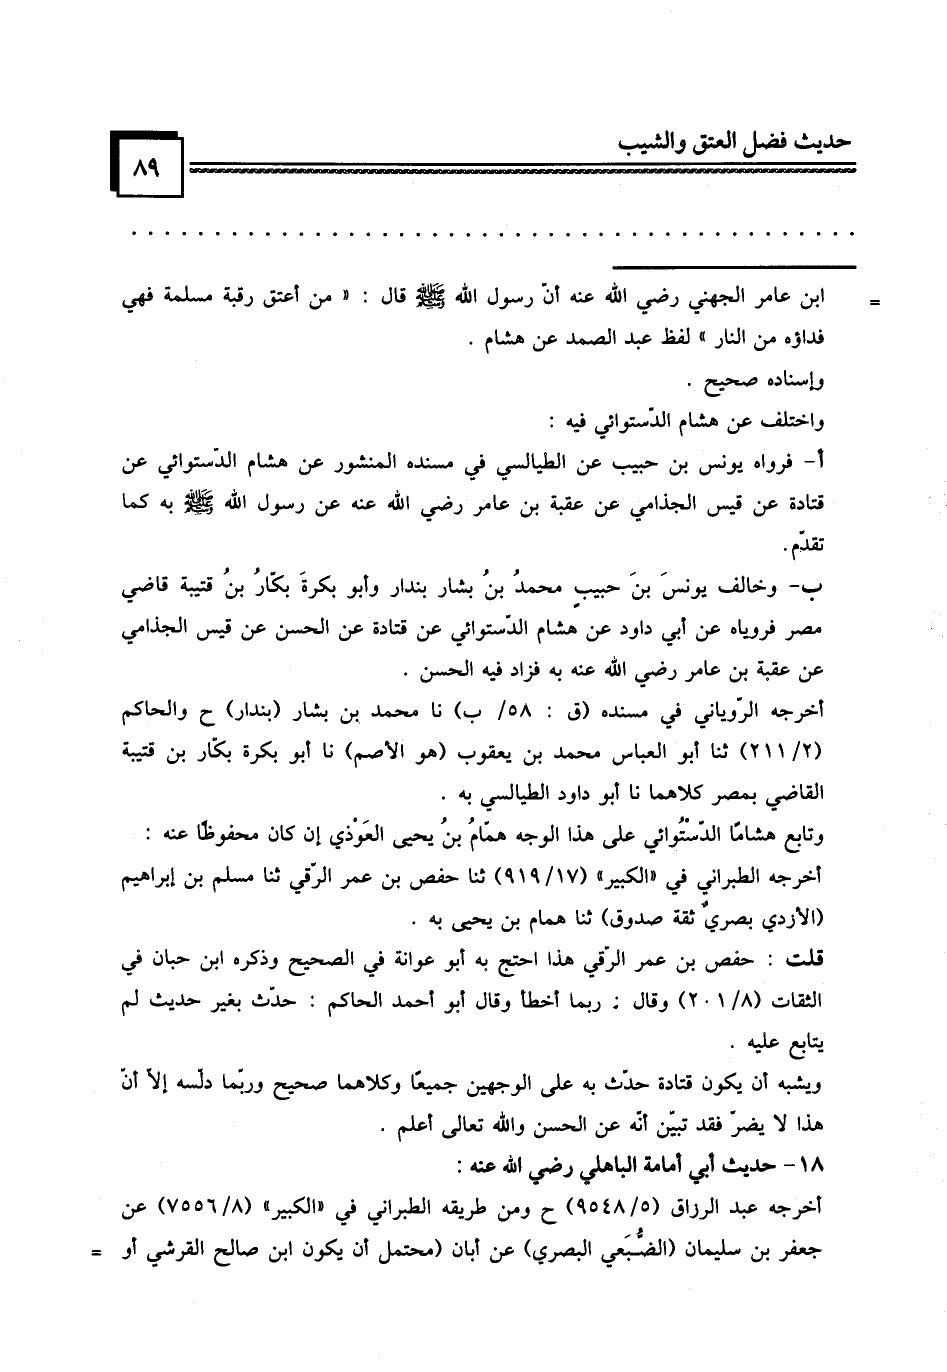 حديث فضل العتق والشيب
٨٩
. . . . . . . . . . . . . . . . . . . . . . . . . . . . . .
= ابن عامر الجهني رضي الله عنه أنّ رسول الله ﷺ قال : « من أعتق رقبة مسلمة فهي
فداؤه من النار » لفظ عبد الصمد عن هشام .
وإسناده صحيح .
واختلف عن هشام الدّستوائي فيه :
أ- فرواه يونس بن حبيب عن الطيالسي في مسنده المنشور عن هشام الدّستوائي عن
قتادة عن قيس الجذامي عن عقبة بن عامر رضي الله عنه عن رسول الله ﷺ به كما
تقدّم.
ب- وخالف يونسَ بنَ حبيبٍ محمدُ بنُ بشار بندار وأبو بكرةَ بكّارُ بنُ قتيبة قاضي
مصر فروياه عن أبي داود عن هشام الدّستوائي عن قتادة عن الحسن عن قيس الجذامي
عن عقبة بن عامر رضي الله عنه به فزاد فيه الحسن .
أخرجه الرّوياني في مسنده (ق : ٥٨/ ب) نا محمد بن بشار (بندار) ح والحاكم
(٢١١/٢) ثنا أبو العباس محمد بن يعقوب (هو الأصم) نا أبو بكرة بكّار بن قتيبة
القاضي بمصر كلاهما نا أبو داود الطيالسي به .
وتابع هشامًا الدّسْتُوائي على هذا الوجه همّامُ بنُ يحيى العَوْذي إن كان محفوظًا عنه :
أخرجه الطبراني في «الكبير» (٩١٩/١٧) ثنا حفص بن عمر الرّقي ثنا مسلم بن إبراهيم
(الأزدي بصريٌ ثقة صدوق) ثنا همام بن يحيى به .
قلت : حفص بن عمر الرّقي هذا احتج به أبو عوانة في الصحيح وذكره ابن حبان في
الثقات (٢٠١/٨) وقال : ربما أخطأ وقال أبو أحمد الحاكم : حدّث بغير حديث لم
يتابع عليه .
ويشبه أن يكون قتادة حدّث به على الوجهين جميعًا وكلاهما صحيح وربّما دلّسه إلاّ أنّ
هذا لا يضرّ فقد تبيّن أنّه عن الحسن والله تعالى أعلم .
١٨- حديث أبي أمامة الباهلي رضي الله عنه :
أخرجه عبد الرزاق (٩٥٤٨/٥) ح ومن طريقه الطبراني في «الكبير» (٧٥٥٦/٨) عن
جعفر بن سليمان (الضُّبَعي البصري) عن أبان (محتمل أن يكون ابن صالح القرشي أو =